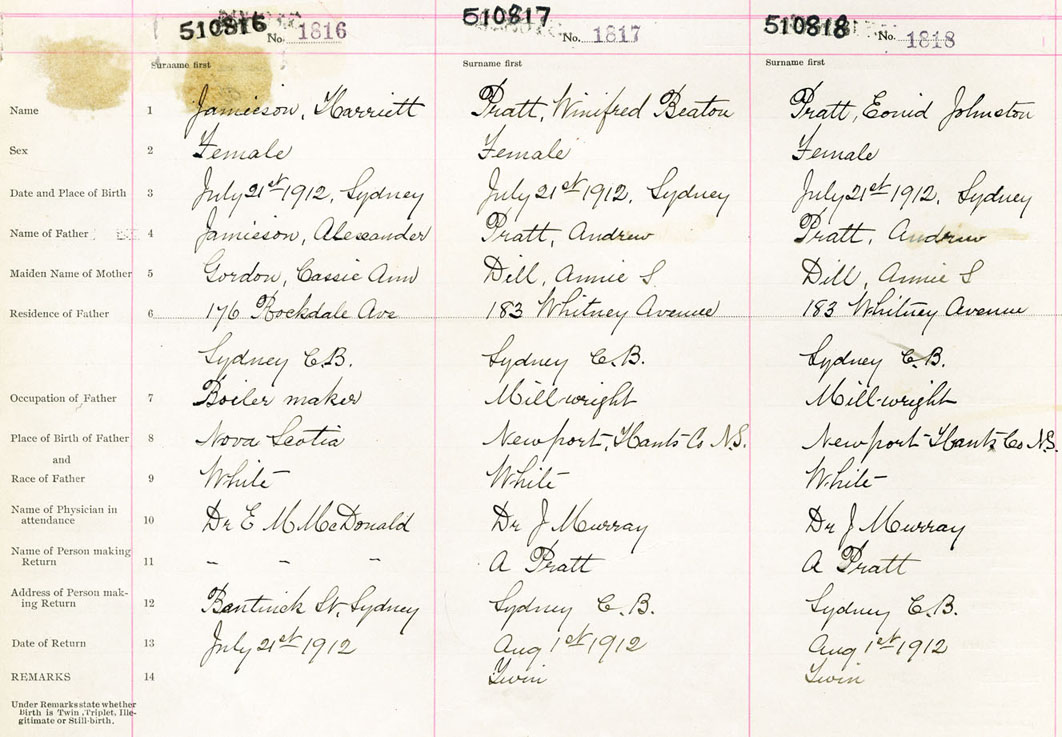 510816 No. 1816 510817 No. 1817 510818 No. 1818
Surname first Surname first Surname first
Name 1 Jamieson, Harriett Pratt, Winifred Beaton Pratt, Eonid Johnston
Sex 2 Female Female Female
Date and Place of Birth 3 July 21st 1912, Sydney July 21st 1912, Sydney July 21st 1912, Sydney
Name of Father 4 Jamieson, Alexander Pratt, Andrew Pratt, Andrew
Maiden Name of Mother 5 Gordon, Cassie Ann Dill, Annie S Dill, Annie S
Residence of Father 6 176 Rockdale Ave 183 Whitney Avenue 183 Whitney Avenue
Sydney C.B. Sydney C.B. Sydney C.B.
Occupation of Father 7 Boiler maker Millwright Mill-wright
Place of Birth of Father 8 Nova Scotia Newport, Hants Co N.S. Newport Hants Co N.S.
and
Race of Father 9 White White White
Name of Physician in
attendance 10 Dr E M McDonald Dr J Murray Dr J Murray
Name of Person making
Return 11 - - - A Pratt A Pratt
Address of Person mak-
ing Return 12 Bentinck St, Sydney Sydney C.B. Sydney C.B.
Date of Return 13 July 21st 1912 Aug 1st 1912 Aug 1st 1912
REMARKS 14 Twin Twin
Under Remarks state whether
Birth is Twin, Triplet, Ille-
gitimate or Still-birth.